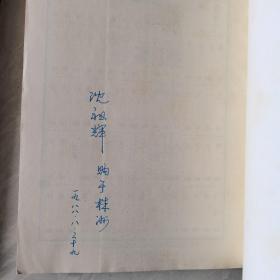 沈祖辉
购于株洲
一九八八.八.二十九